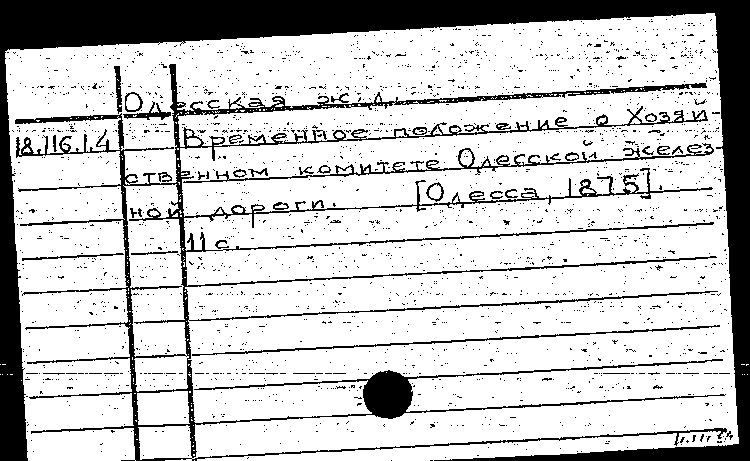 Одесская ж.д.
18.116.1.4 Временное положение о Хозяй-
ственном комитете Одесской желез-
ной дороги. [Одесса, 1875].
11 с.